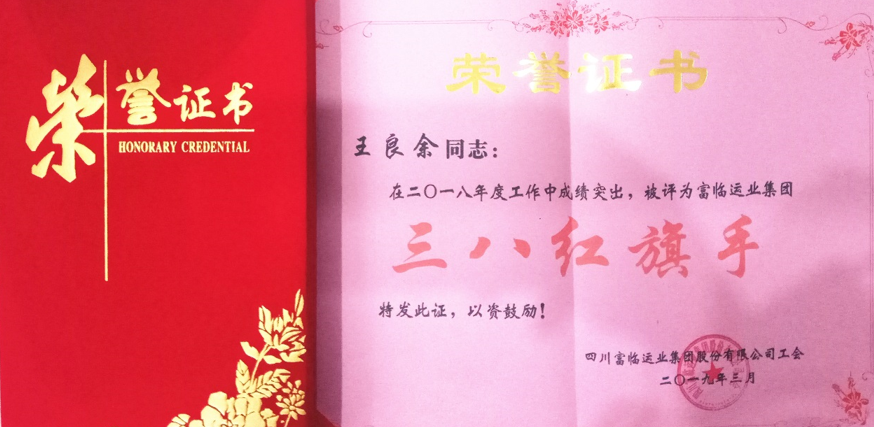 荣誉证书
HONORARY CREDENTIAL
荣誉证书
王良余同志：
在二〇一八年度工作中成绩突出，被评为富临运业集团
三八红旗手
特发此证，以资鼓励！
四川富临运业集团股份有限公司工会
二〇一九年三月